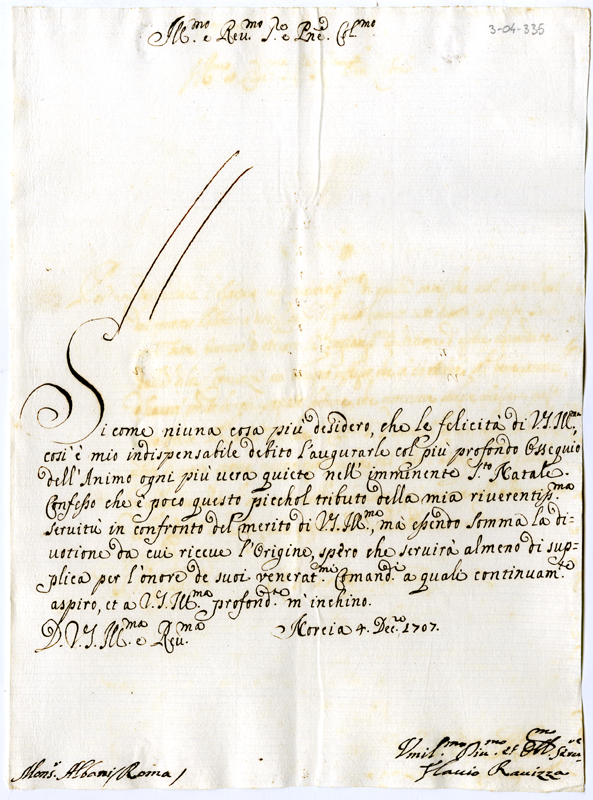 3-04-335
Ill.mo e Reu.mo S.re e Pne Col.mo
Si come niuna cosa più desidero, che le felicità di V.S.Ill.ma,
cosi è mio indispensabile debito l'augurarle col più profondo Ossequio
dell'Animo ogni più vera quiete nell'imminente S.to Natale.
Confesso che è poco questo picchol tributo della mia riuerentis.ma
seruitù in confronto del merito di V.S.Ill.ma, ma essendo somma la di-
uotione da cui riceue l'Origine, spero che seruirà almeno di sup=
plica per l'onore de suoi venerat.mi Comandi a quali continuam.te
aspiro, et a V.S.Ill.ma profond.te m'inchino.
D.V.S.Ill.ma e Reu.ma Norcia 4. Dec.ro 1707.
Vmil.mo Diu.mo et Seru.re
Mons.r Albani / Roma / Flauio Rauizza